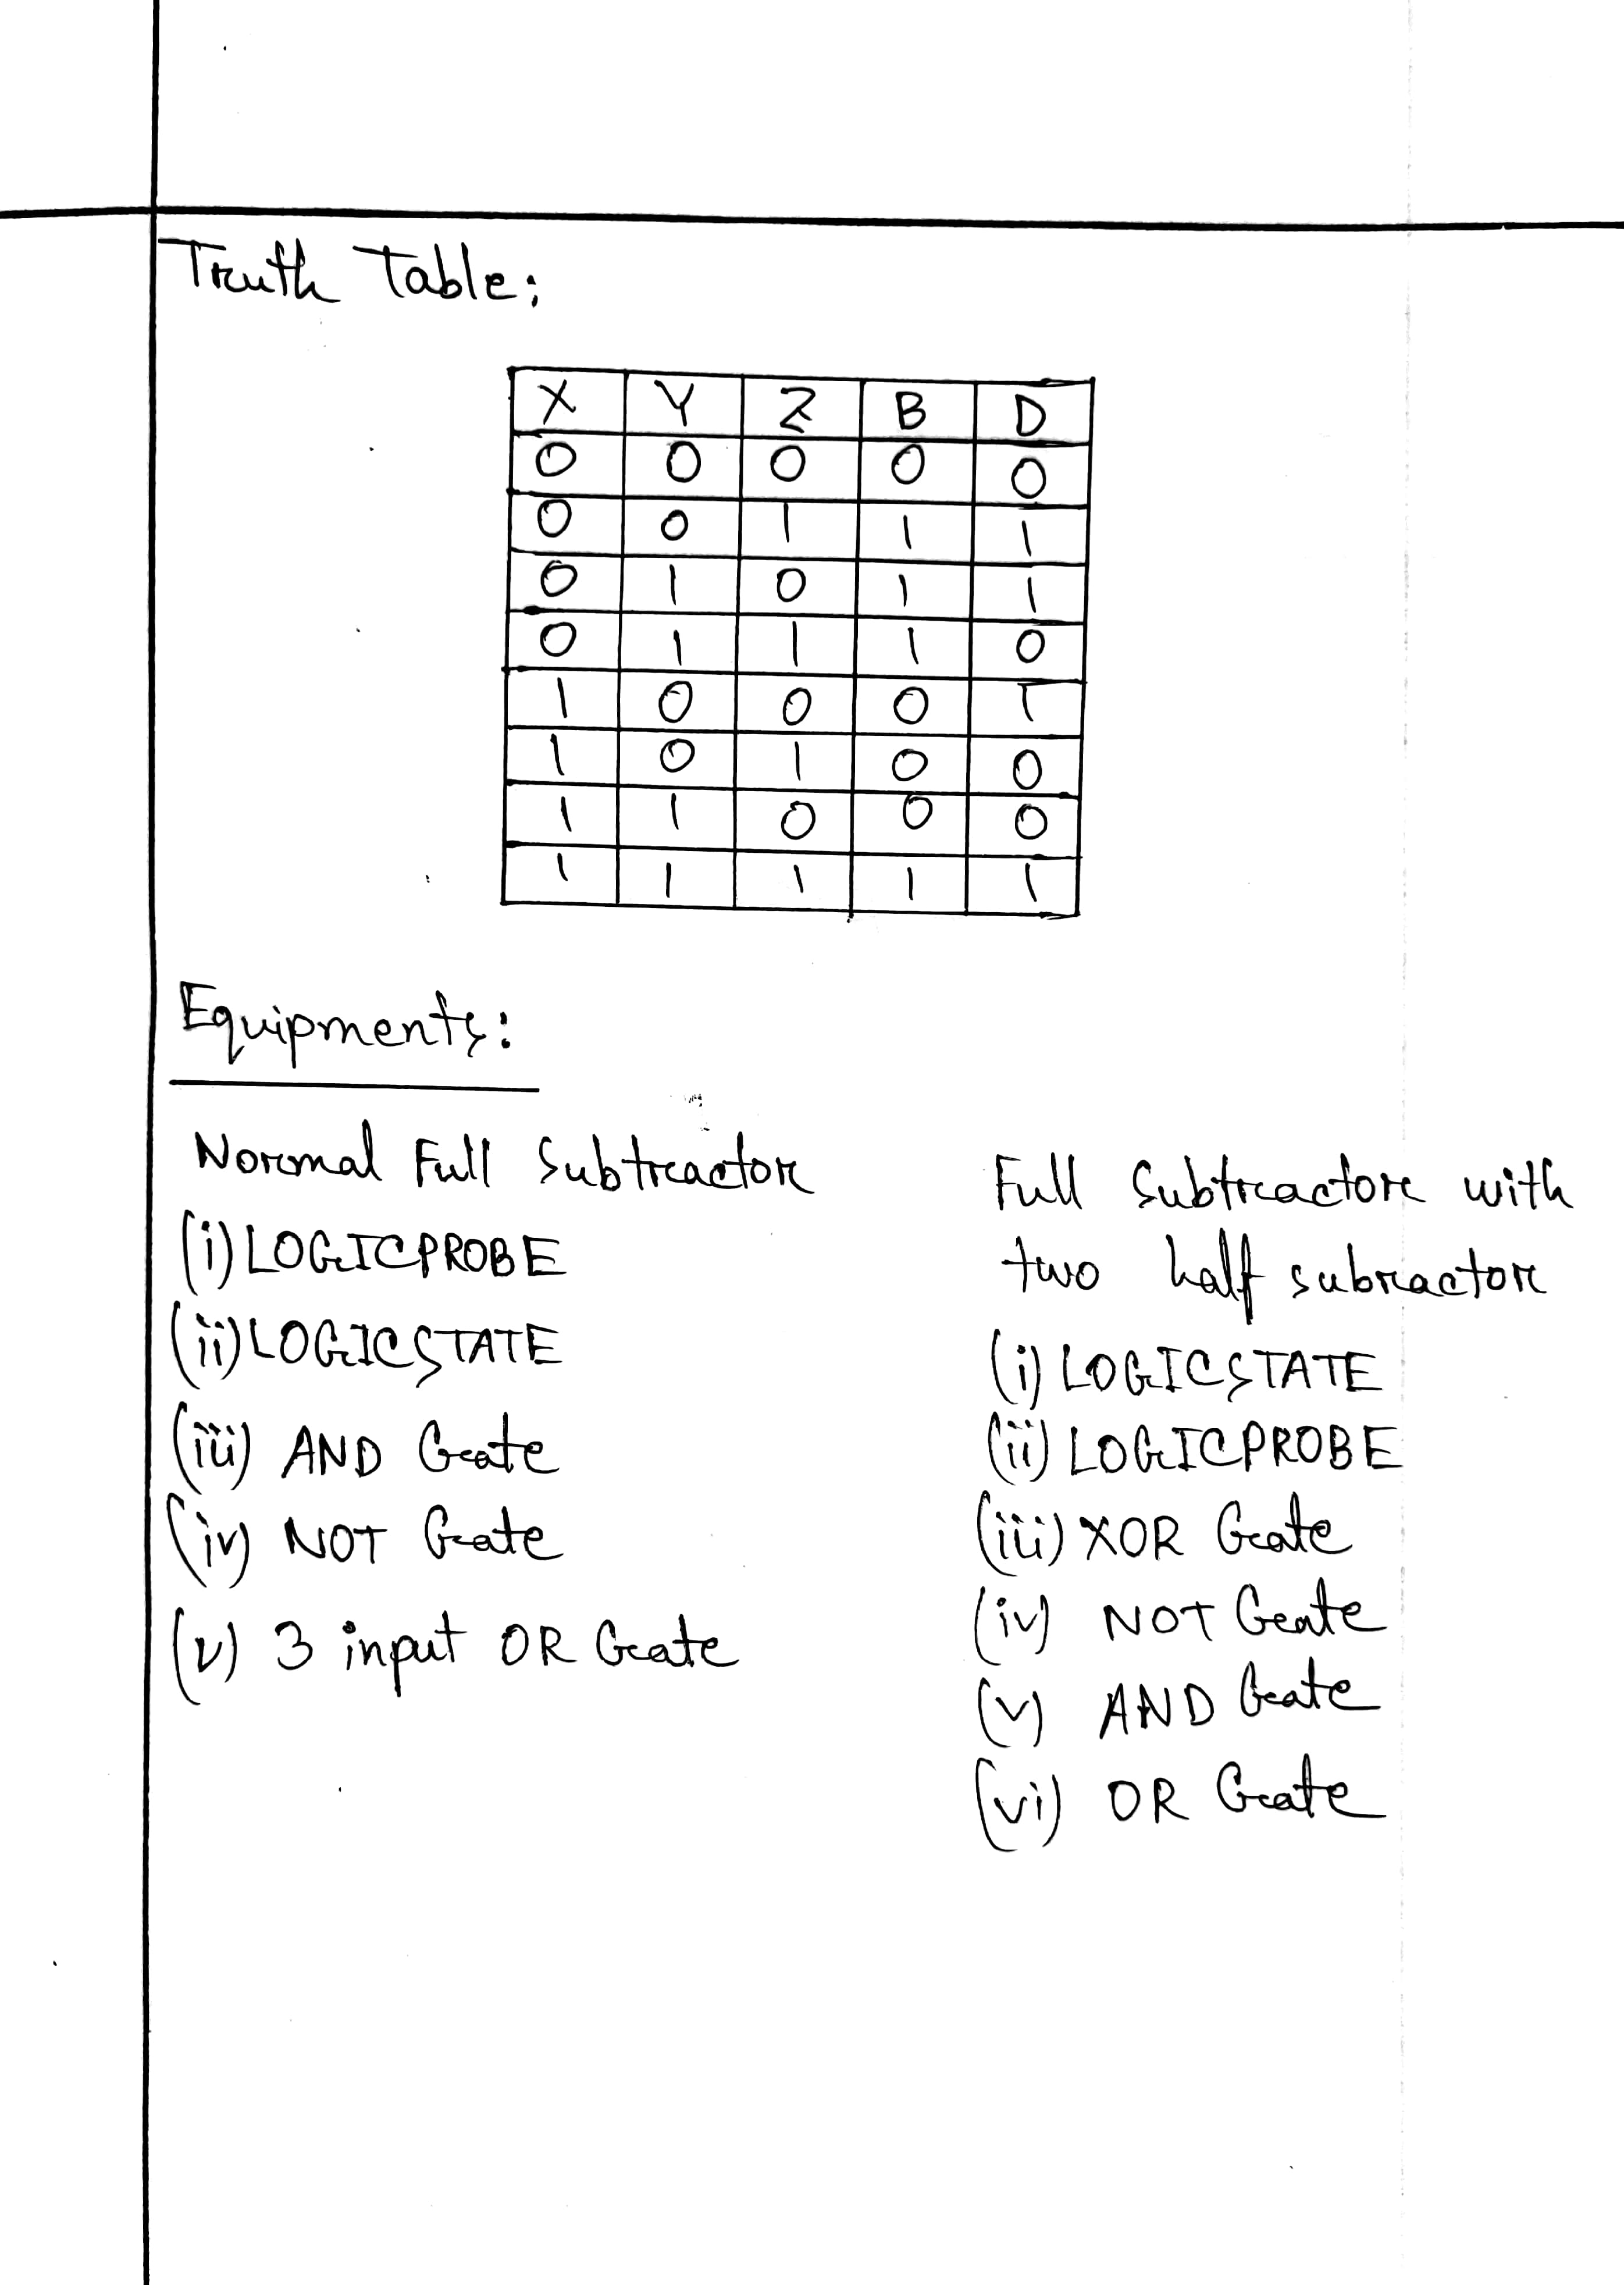 Truth Table:
X Y Z B D
0 0 0 0 0
0 0 1 1 1
0 1 0 1 1
0 1 1 1 0
1 0 0 0 1
1 0 1 0 0
1 1 0 0 0
1 1 1 1 1
Equipments:
Normal Full Subtractor
(i) LOGICPROBE
(ii) LOGICSTATE
(iii) AND Gate
(iv) NOT Gate
(v) 3 input OR Gate
Full Subtractor with
two half subractor
(i) LOGICSTATE
(ii) LOGICPROBE
(iii) XOR Gate
(iv) NOT Gate
(v) AND Gate
(vi) OR Gate